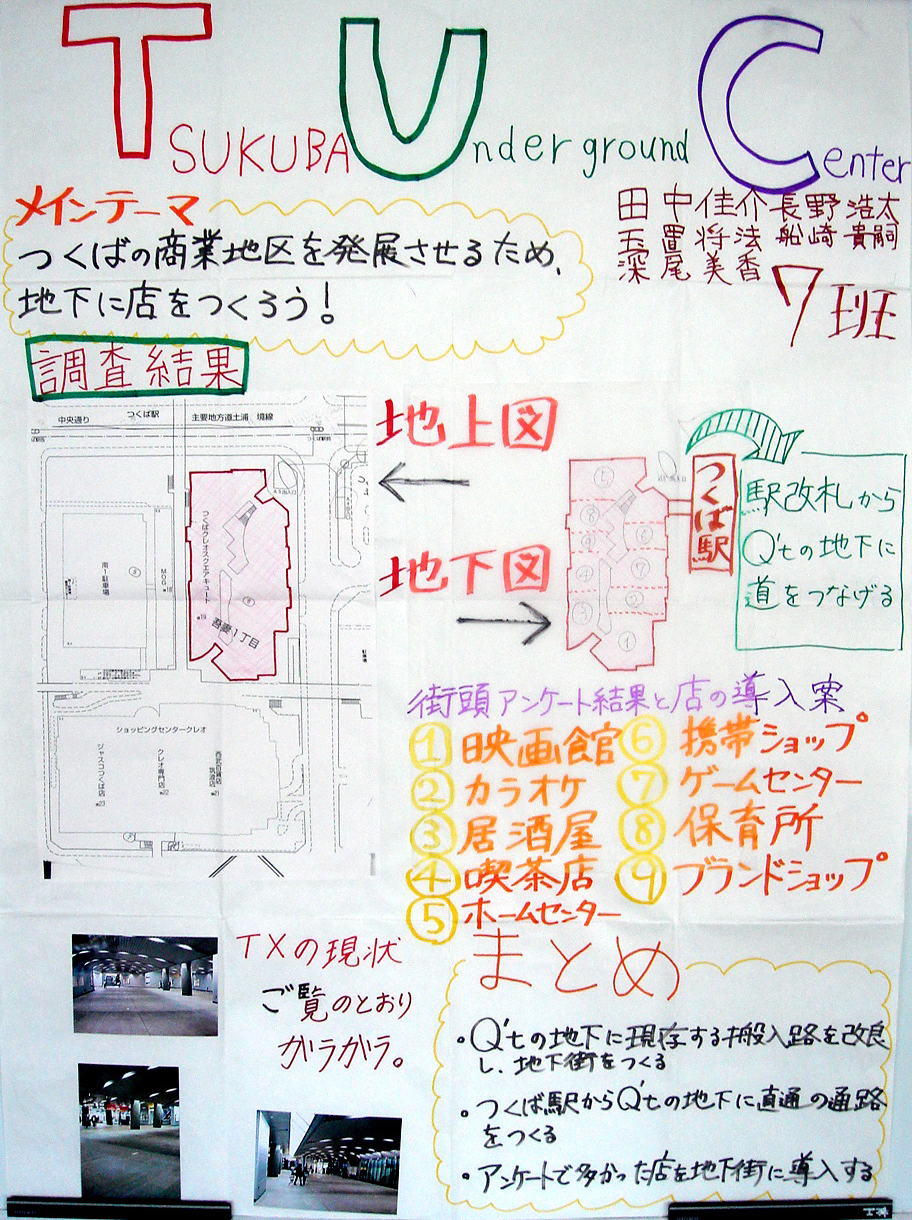 TSUKUBA Underground Center
メインテーマ
つくばの商業地区を発展させるため、
地下に店をつくろう!
田中佳介 長野浩太
玉置将法 船崎貴嗣
深尾美香
7班
調査結果
中央通り つくば駅 主要地方道土浦 境線
つくば駅
南1駐車場
MOG
つくばクレオスクエアキュート
吾妻1丁目
ショッピングセンタークレオ
ジャスコつくば店
クレオ専門店
西武百貨店筑波店
地上図
←
地下図
→
つくば駅
駅改札から
Q'tの地下に
道をつなげる
街頭アンケート結果と店の導入案
①映画館
②カラオケ
③居酒屋
④喫茶店
⑤ホームセンター
⑥携帯ショップ
⑦ゲームセンター
⑧保育所
⑨ブランドショップ
TXの現状
ご覧のとおり
ガラガラ。
まとめ
・Q'tの地下に現存する搬入路を改良
し、地下街をつくる
・つくば駅からQ'tの地下に直通の通路
をつくる
・アンケートで多かった店を地下街に導入する